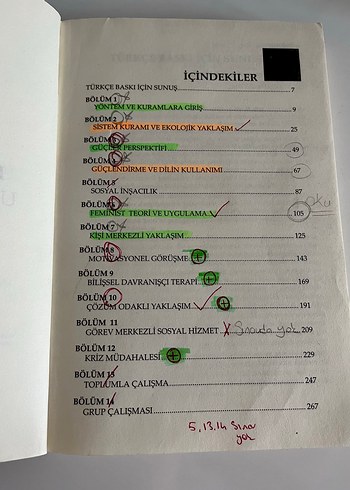 İÇİNDEKİLER
TÜRKÇE BASKI İÇİN SUNUŞ 7
BÖLÜM 1
YÖNTEM VE KURAMLARA GİRİŞ 9
BÖLÜM 2
SİSTEM KURAMI VE EKOLOJİK YAKLAŞIM 25
BÖLÜM 3
GÜÇLER PERSPEKTİFİ 49
BÖLÜM 4
GÜÇLENDİRME VE DİLİN KULLANIMI 67
BÖLÜM 5
SOSYAL İNŞACILIK 87
BÖLÜM 6
FEMİNİST TEORİ VE UYGULAMA 105 Oku
BÖLÜM 7
KİŞİ MERKEZLİ YAKLAŞIM 125
BÖLÜM 8
MOTİVASYONEL GÖRÜŞME 143
BÖLÜM 9
BİLİŞSEL DAVRANIŞÇI TERAPİ 169
BÖLÜM 10
ÇÖZÜM ODAKLI YAKLAŞIM 191
BÖLÜM 11
GÖREV MERKEZLİ SOSYAL HİZMET X Sınavda yok 209
BÖLÜM 12
KRİZ MÜDAHALESİ 229
BÖLÜM 13
TOPLUMLA ÇALIŞMA 247
BÖLÜM 14
GRUP ÇALIŞMASI 267
5, 13, 14 Sınav
yok